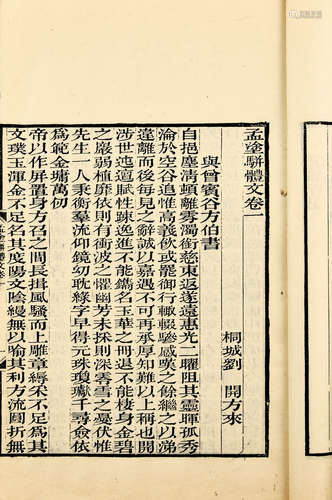 孟塗駢體文卷一
桐城劉 開方來
與曾賓谷方伯書
自挹塵清頓離霧濁銜慈東返遂遠惠光二曜阻其靈暉孤秀
淪於空谷追惟高義欲或罷御行輒輟軫感嘆之餘繼之以涕
違離而後每見之辭誠以嘉遇不可再承厚知難以上稱也開
涉世迍邅賦性踈逸進不能鐫名玉華之冊退不能棲身金碧
之巖弱植厲秋則有衝波之懼幽芳未採則深霧雪之憂伏惟
先生一人秉衡羣流仰鏡幼耽綠字早得元珠瓊巘千尋僉依
為範金墉萬仞
帝以作屏置身方召之間長揖風騷而上雕章縟采不足為其
文璞玉渾金不足名其度陽文陰縵無以喻其利方流圓折無